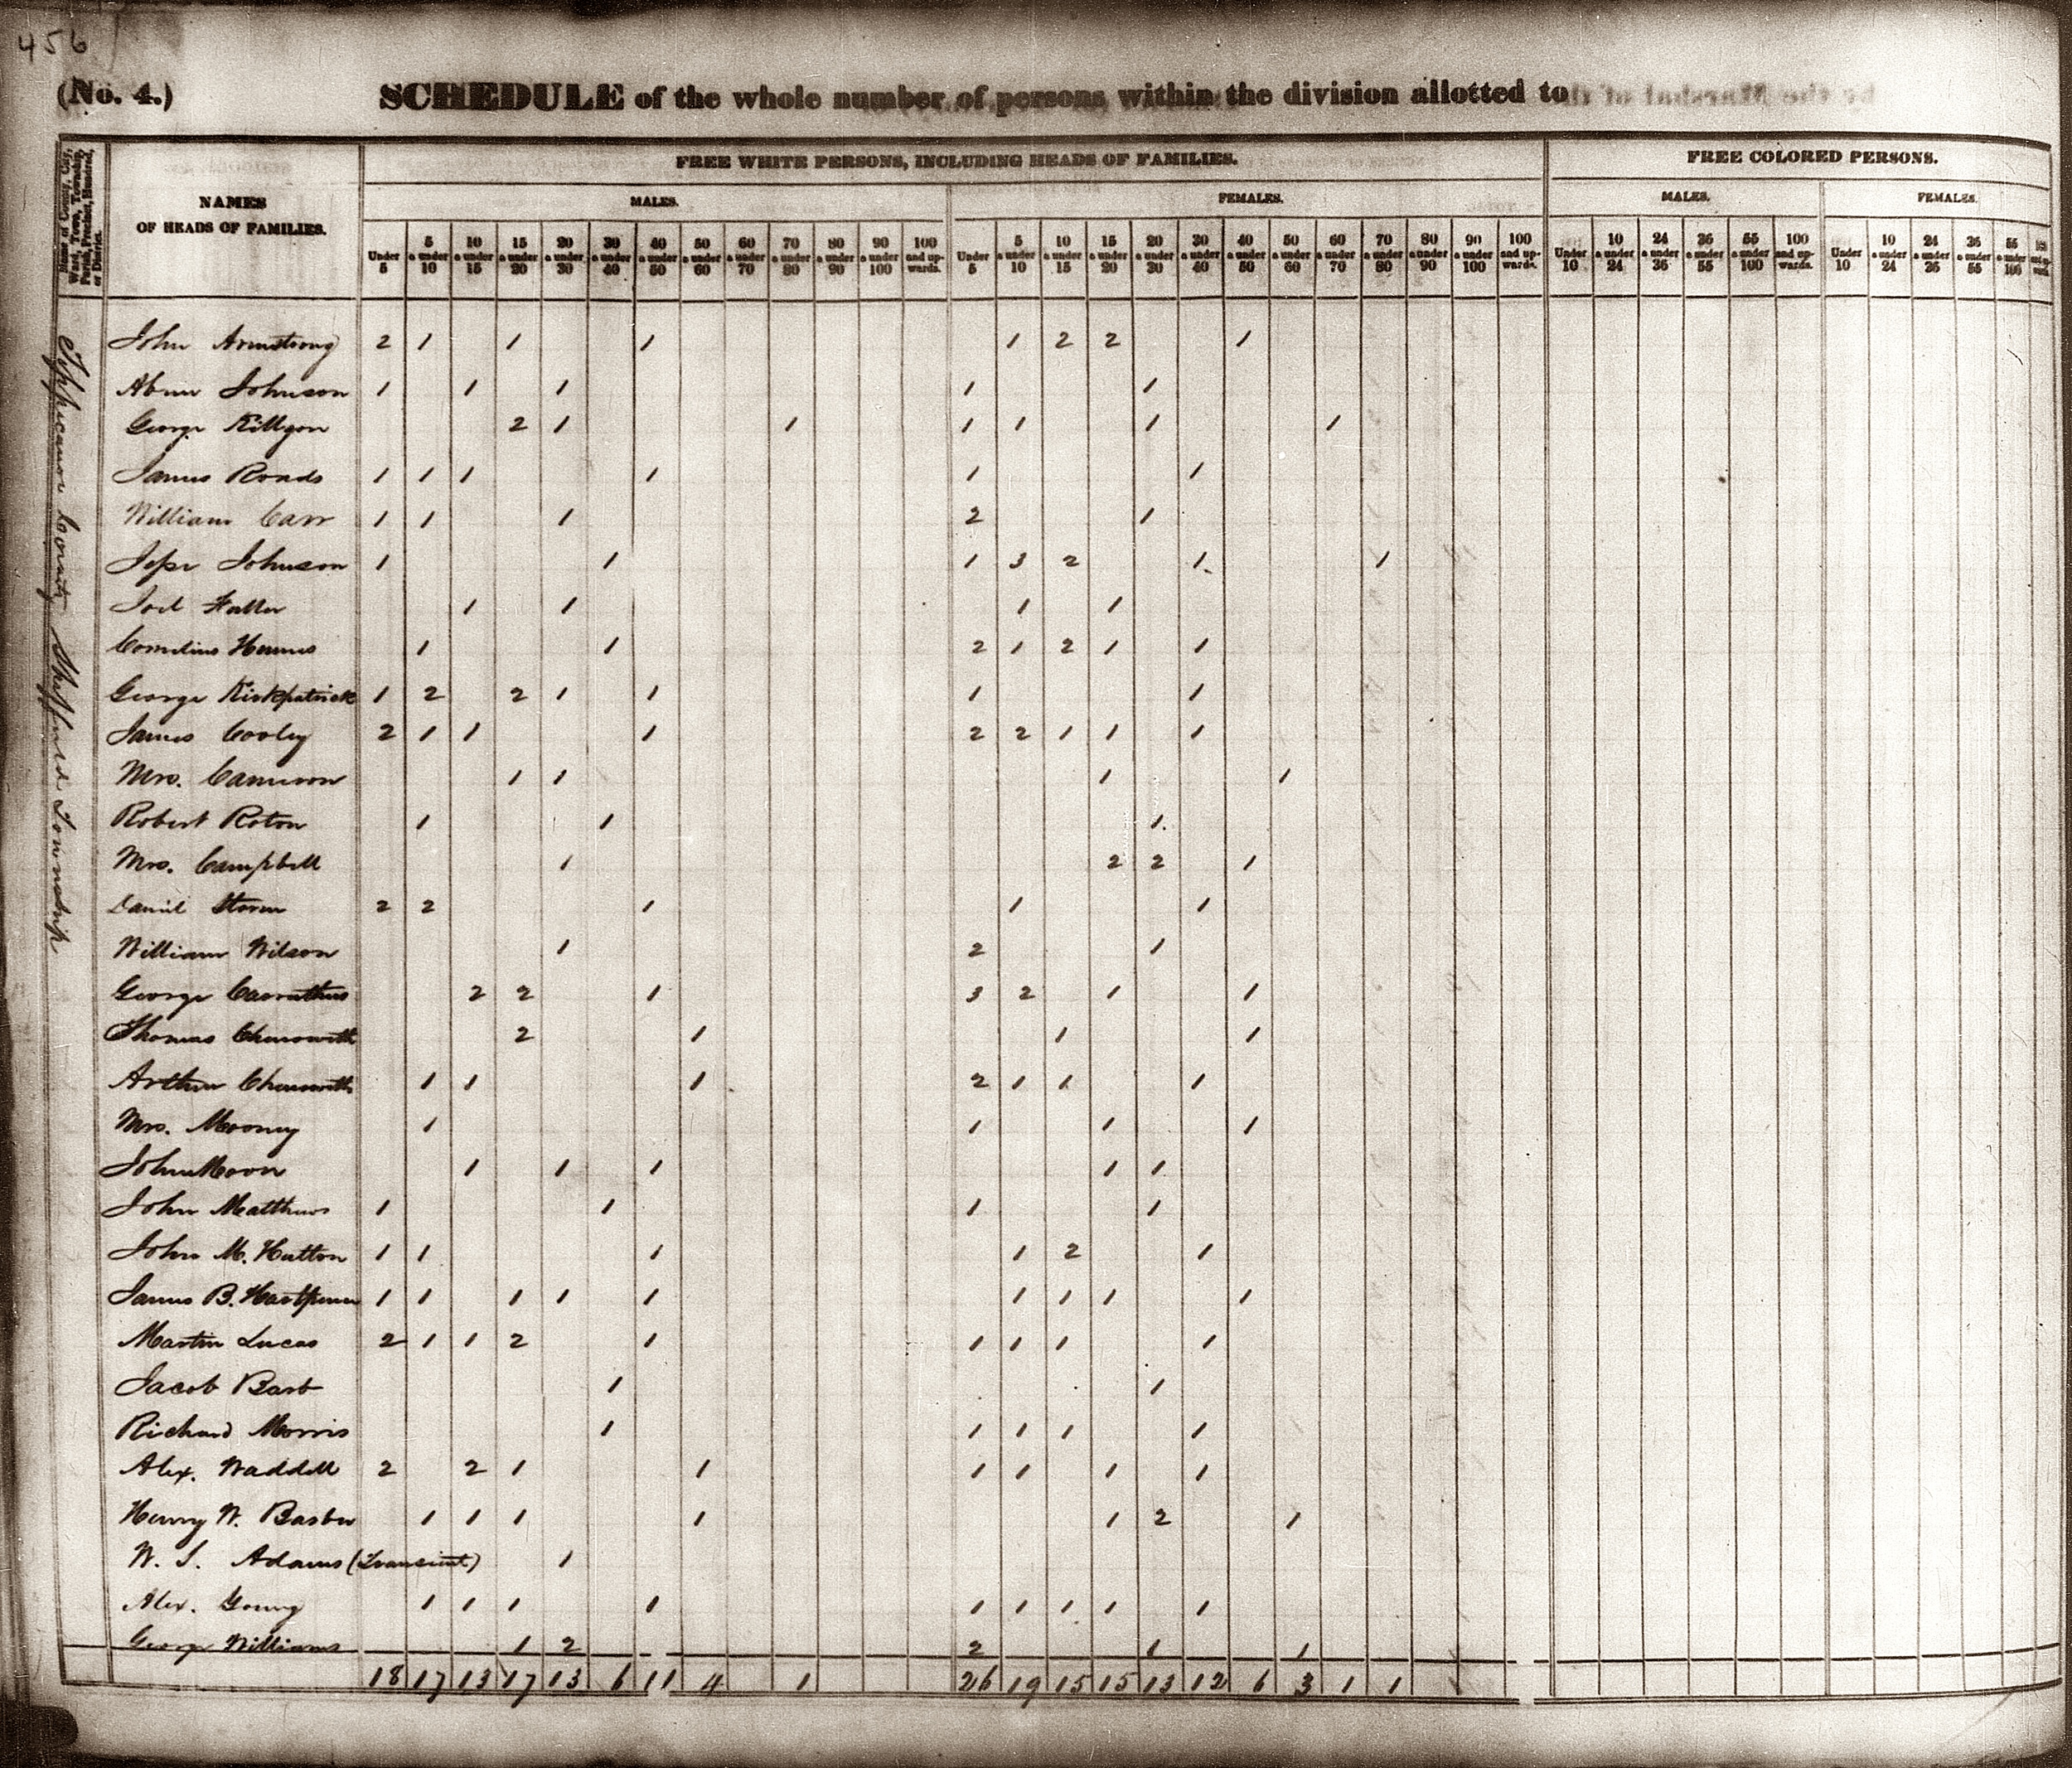 456
(No. 4.) SCHEDULE of the whole number of persons within the division allotted to
Name of County, City, Ward, Town, Township, Parish, Precinct, Hundred, or District.
NAMES
OF HEADS OF FAMILIES.
FREE WHITE PERSONS, INCLUDING HEADS OF FAMILIES.
FREE COLORED PERSONS.
MALES. FEMALES. MALES. FEMALES.
Under 5 5 & under 10 10 & under 15 15 & under 20 20 & under 30 30 & under 40 40 & under 50 50 & under 60 60 & under 70 70 & under 80 80 & under 90 90 & under 100 100 and upwards. Under 5 5 & under 10 10 & under 15 15 & under 20 20 & under 30 30 & under 40 40 & under 50 50 & under 60 60 & under 70 70 & under 80 80 & under 90 90 & under 100 100 and upwards. Under 10 10 & under 24 24 & under 36 36 & under 55 55 & under 100 100 and upwards. Under 10 10 & under 24 24 & under 36 36 & under 55 55 & under 100
Tippecanoe County Sheffield Township
John Armstrong 2 1 1 1 1 2 2 1
Abner Johnson 1 1 1 1 1
George Killgon 2 1 1 1 1 1 1
James Roads 1 1 1 1 1 1
William Carr 1 1 1 2 1
Jesse Johnson 1 1 1 3 2 1 1
Joel 1 1 1 1
Cornelius 1 1 2 1 2 1 1
George Kirkpatrick 1 2 2 1 1 1 1
James Cooley 2 1 1 1 2 2 1 1 1
Mrs. Cameron 1 1 1 1
Robert Roton 1 1 1
Mrs. Campbell 1 2 2 1
Daniel Storm 2 2 1 1 1
William Wilson 1 2 1
George Carruthers 2 2 1 3 2 1 1
Thomas Chenoweth 2 1 1 1
Arthur Chenoweth 1 1 1 2 1 1 1
Mrs. Mooney 1 1 1 1
John Moon 1 1 1 1 1
John Matthews 1 1 1 1
John M. Hutton 1 1 1 1 2 1
James B. 1 1 1 1 1 1 1 1 1
Martin Lucas 2 1 1 2 1 1 1 1 1
Jacob Barb 1 1
Richard Morris 1 1 1 1 1
Alex. Waddell 2 2 1 1 1 1 1 1
Henry W. Basber 1 1 1 1 1 2 1
W. S. Adams (Transient) 1
Alex. Young 1 1 1 1 1 1 1 1 1
George Williams 1 2 2 1 1
18 17 13 17 13 6 11 4 1 26 19 15 15 13 12 6 3 1 1